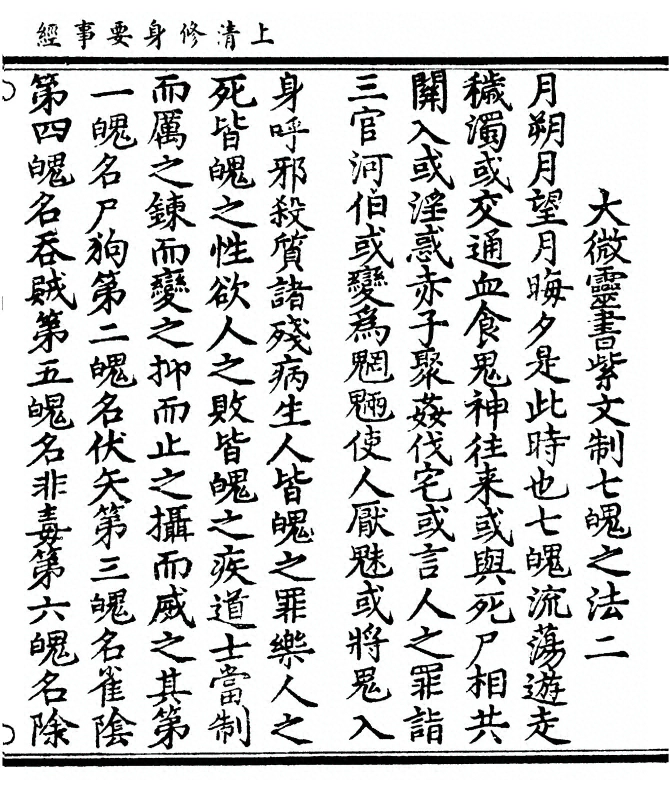 上清修身要事經
大微靈書紫文制七魄之法二
月朔月望月晦夕是此時也七魄流蕩遊走
穢濁或交通血食鬼神往来或與死尸相共
關入或淫惑赤子聚姦伐宅或言人之罪詣
三官河伯或變爲魍魎使人厭魅或將鬼入
身呼邪殺質諸殘病生人皆魄之罪樂人之
死皆魄之性欲人之敗皆魄之疾道士當制
而厲之鍊而變之抑而止之攝而威之其第
一魄名尸狗第二魄名伏矢第三魄名雀陰
第四魄名吞賊第五魄名非毒第六魄名除